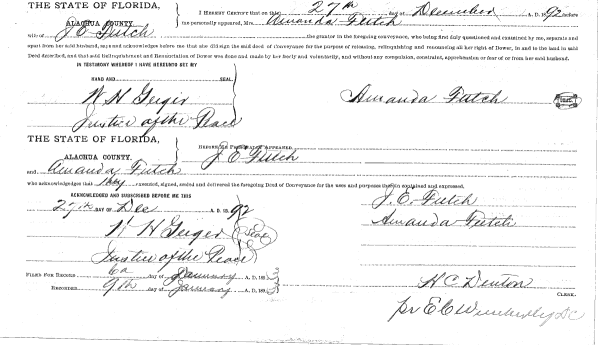 THE STATE OF FLORIDA,
ALACHUA COUNTY.
I HEREBY CERTIFY that on this 27th day of December A. D. 1892 before
me personally appeared, Mrs. Amanda Futch
wife of J E Futch the grantor in the foregoing conveyance, who being first duly questioned and examined by me, separate and
apart from her said husband, says and acknowledges before me that she did sign the said deed of Conveyance for the purpose of releasing, relinquishing and renouncing all her right of Dower, in and to the land in said
Deed described, and that said Relinquishment and Renunciation of Dower was done and made by her freely and voluntarily, and without any compulsion, constraint, apprehension or fear of or from her said husband.
IN TESTIMONY WHEREOF I HAVE HEREUNTO SET MY
HAND AND SEAL.
W H Geiger
Justice of the Peace
Amanda Futch
SEAL
THE STATE OF FLORIDA,
ALACHUA COUNTY.
BEFORE ME PERSONALLY APPEARED
J E Futch
and Amanda Futch
who acknowledges that they executed, signed, sealed and delivered the foregoing Deed of Conveyance for the uses and purposes therein contained and expressed.
ACKNOWLEDGED AND SUBSCRIBED BEFORE ME THIS
27th DAY OF Dec A. D. 1892
W H Geiger Seal
Justice of the Peace
J. E. Futch
Amanda Futch
FILED FOR RECORD day of January A. D. 189
RECORDED 9th day of January A. D. 189
H C Denton
CLERK.
pr E C Wimberly DC